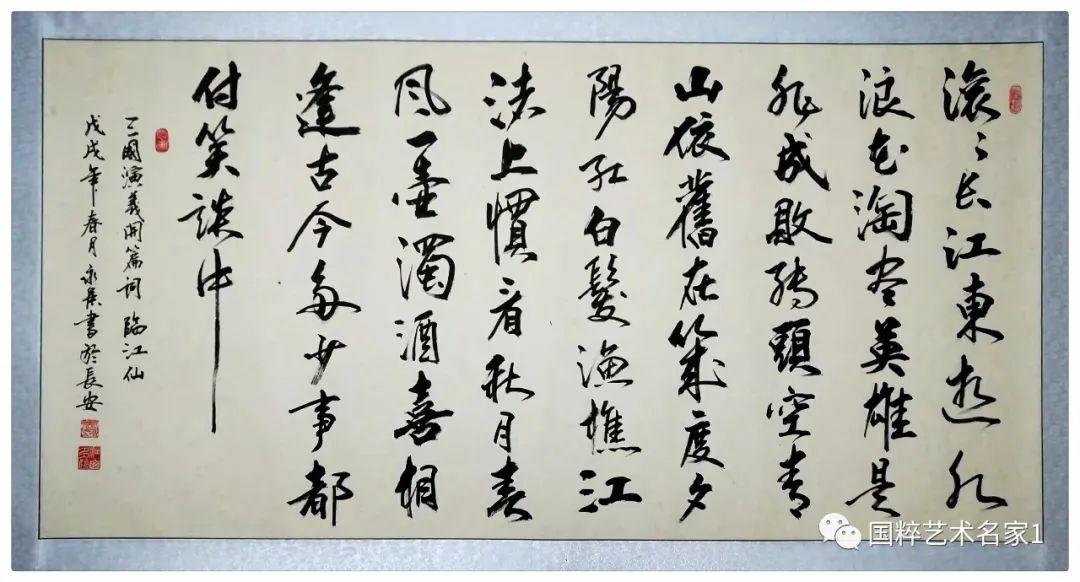 滚〻长江東逝水
浪花淘尽英雄是
非成敗转頭空青
山依舊在幾度夕
陽红白髮渔樵江
渚上慣看秋月春
风一壶濁酒喜相
逢古今多少事都
付笑談中
三國演義開篇词臨江仙
戊戌年春月永集書於長安
国粹艺术名家1